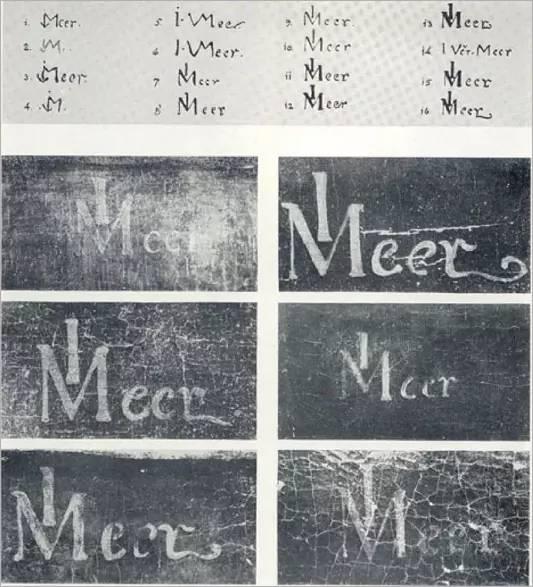 1. Meer. 5. i·VMeer 9. Meer. 13 Meer
2. M.. 6 I·VMeer. 10. Meer 14 I Vér·Meer
3. Meer 7 Meer 11 Meer 15 Meer
4. M. 8 Meer 12 Meer 16 Meer
Meer Meer
Meer Meer
Meer Meer